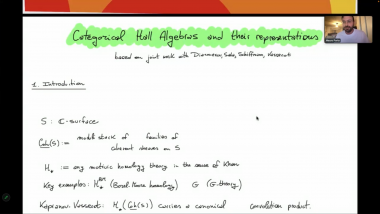 Categorical Hall Algebras and their representations
based on joint work with Diaconescu, Sala, Schiffmann, Vasserot
1. Introduction
S : ℂ-surface
Coh(S) := moduli stack of families of
coherent sheaves on S
H* := any motivic homology theory in the sense of Khan
Key examples: H*^BM (Borel-Moore homology) G (G-theory)
Kapranov-Vasserot: H*(Coh(S)) carries a canonical convolution product.